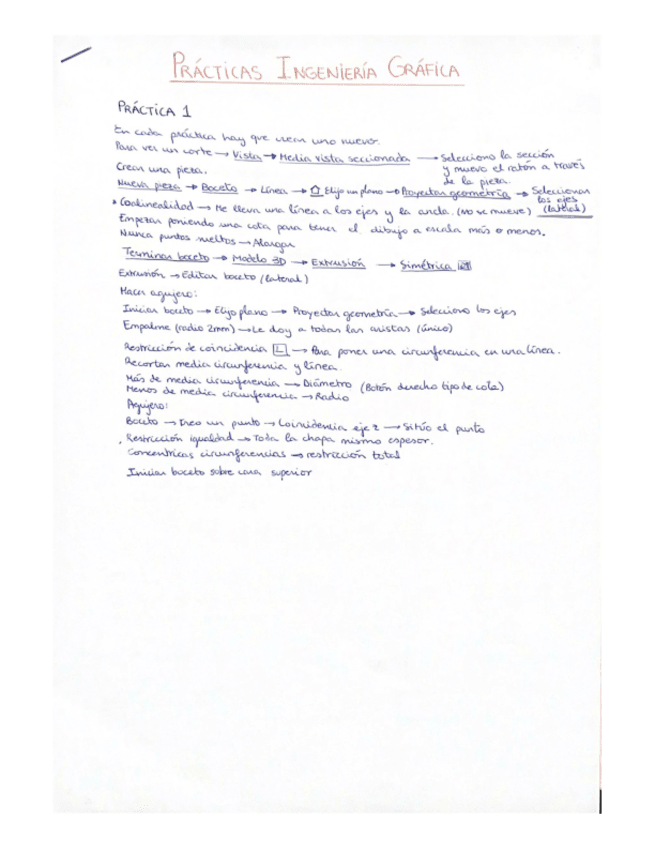 PRÁCTICAS INGENIERÍA GRÁFICA
PRÁCTICA 1
En cada práctica hay que crear uno nuevo.
Para ver un corte → Vista → Media vista seccionada → Selecciono la sección
y muevo el ratón a través
de la pieza.
Crear una pieza.
Nueva pieza → Boceto → Línea → Elijo un plano → Proyectar geometría → Seleccionar
los ejes
(lateral)
• Coolinealidad → Me lleva una línea a los ejes y la ancla. (No se mueve)
Empezar poniendo una cota para tener el dibujo a escala más o menos.
Nunca puntos sueltos → Alargar
Terminar boceto → Modelo 3D → Extrusión → Simétrica
Extrusión → Editar boceto (lateral)
Hacer agujero:
Iniciar boceto → Elijo plano → Proyectar geometría → Selecciono los ejes
Empalme (radio 2mm) → Le doy a todas las aristas (único)
Restricción de coincidencia → Para poner una circunferencia en una línea.
Recortar media circunferencia y línea.
Más de media circunferencia → Diámetro (Botón derecho tipo de cota)
Menos de media circunferencia → Radio
Agujero:
Boceto → Creo un punto → Coincidencia eje z → Sitúo el punto
Restricción igualdad → Toda la chapa mismo espesor.
Concentricas circunferencias → restricción total
Iniciar boceto sobre cara superior